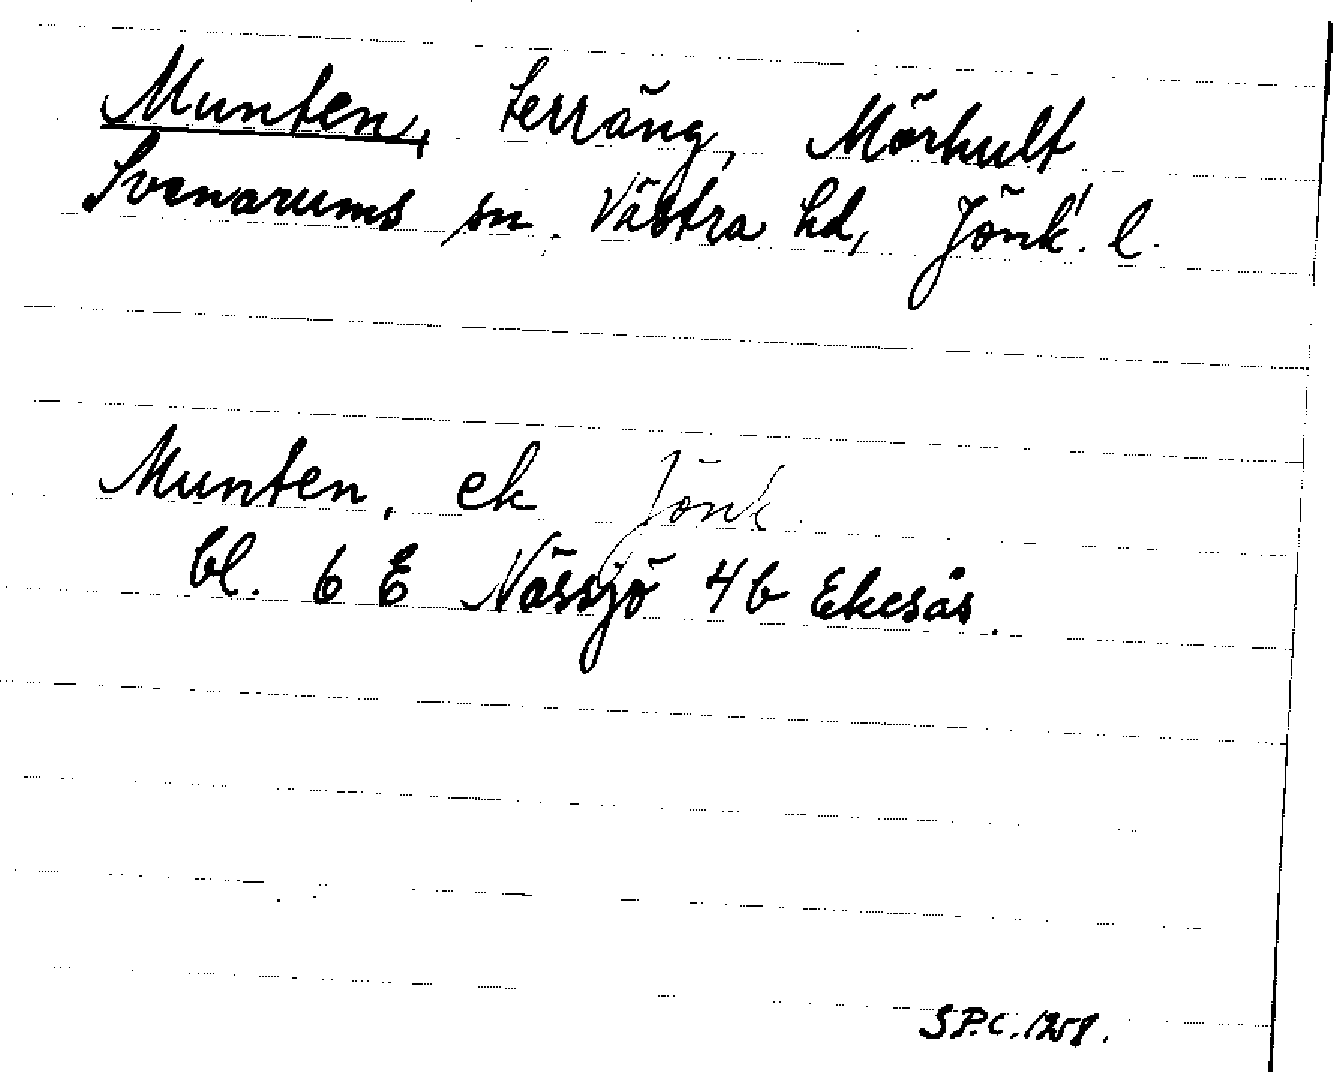 Munten, terräng, Mörhult
Svenarums sn. Västra hd, Jönk. l.
Munten, ek Jönk.
bl. 6 E Nässjö 4b Ekesås.
S.P.C. 1258.